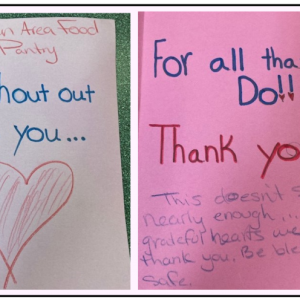 in Area Food
Pantry
hout out
you...
For all tha
Do!!
Thank yo
This doesn't s
nearly enough,...
grateful hearts we
thank you. Be ble
safe.